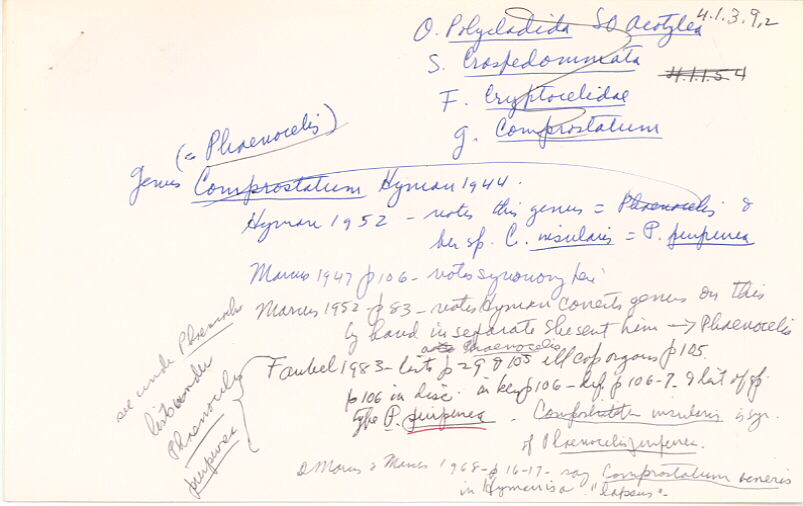 O. Polycladida SO Acotylea 4.1.3.9.2
S. Craspedommata 4.1.1.5.4
F. Cryptocelidae
g. Comprostatum
(= Phaenocelis)
Genus Comprostatum Hyman 1944.
Hyman 1952 - notes this genus = Phaenocelis &
her sp. C. insularis = P. purpurea
Marcus 1947 p106 - notes synonomy here
Marcus 1952 - p83 - notes Hyman corrects genus on this
by hand in separate she sent him → Phaenocelis
Phaenocelis
Faubel 1983 - lists p29 & 105 ill cop organs p105.
p106 in disc. in key p106 - def. p106-7. & list of sp.
type P. purpurea. insularis is syn.
of Phaenocelis purpurea.
see under Phaenocelis
lists under
Phaenocelis
purpurea
Marcus & Marcus 1968 - p16-17 - say Comprostatum
in Hyman is a "lapsus" -